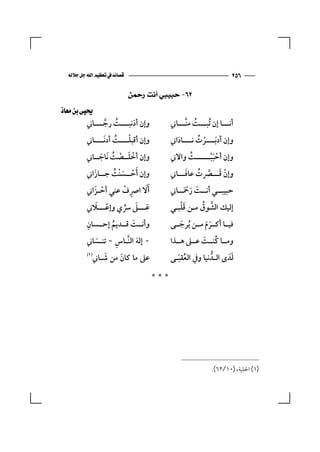 ٢٥٦ قصائد في تعظيم الله جل جلاله
٦٢- حبيبي أنت رحمن
يحيى بن معاذ
أنـا إن تُبتُ منَّـاني وإن أذنَبتُ رجَّـاني
وإن أدبَرتُ نـادَاني وإن أقبلْتُ أدنَـاني
وإن أحْبَبْتُ والاني وإن أخْلَصْتُ نَاجَـاني
وإنْ قَصَّرتُ عافَـاني وإن أَحْسَنْتُ جـازَاني
حبيبـي أنـتَ رَحْمَـاني ألَا اصرِفْ عني أحْزَاني
إليك الشَّوقُ مـن قَلْبـي عَـلَى سرِّي وإعْـلَاني
فيـا أكـرَمَ مـن يُرجَـى وأنـتَ قـديمُ إحـسانِ
ومـا كُنـتَ عـلى هـذا - إلهَ النَّـاسِ - تنـسَاني
لَدى الـدُّنيا وفِي العُقبَـى على ما كانَ من شَـاني (١)
* * *
(١) الحلية، (٦٢/١٠).